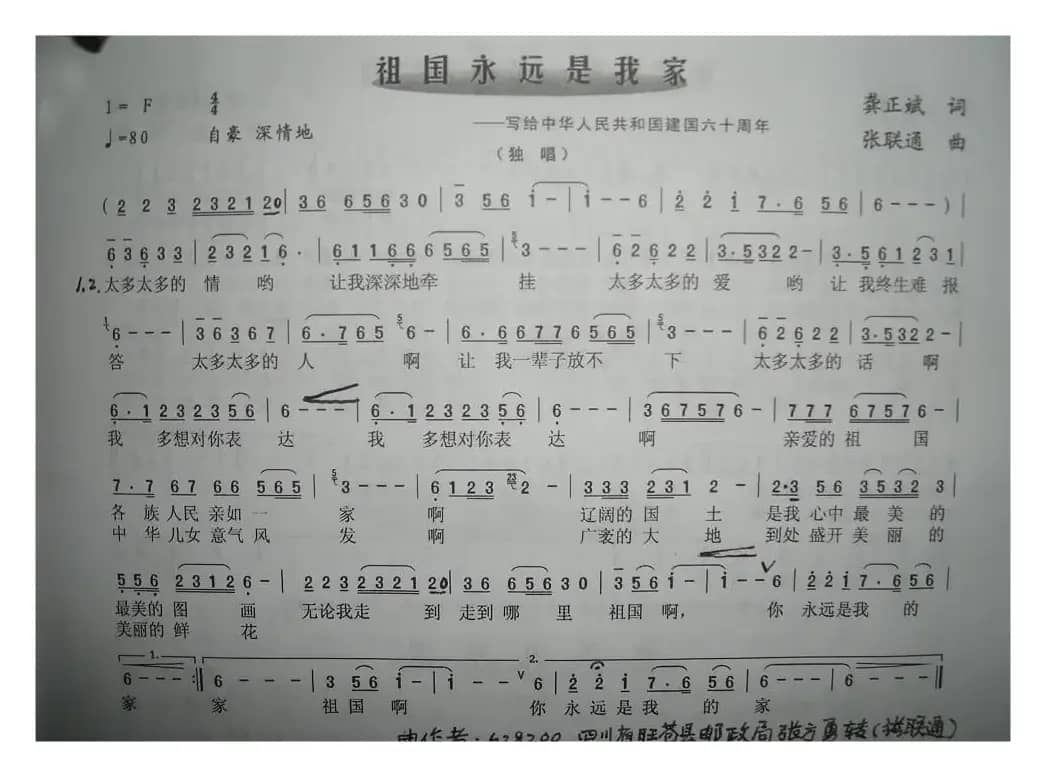 祖国永远是我家
1= F 4/4
龚正斌 词
♩=80 自豪 深情地
——写给中华人民共和国建国六十周年
张联通 曲
（独 唱）
( 2 2 3 2 3 2 1 2 0 | 3 6 6 5 6 3 0 | 3 5 6 i - | i - - 6 | 2 2 i 7 . 6 5 6 | 6 - - - ) |
6 3 6 3 3 | 2 3 2 1 6 . | 6 1 1 6 6 6 5 6 5 | 3 - - - | 6 2 6 2 2 | 3 . 5 3 2 2 - | 3 . 5 6 1 2 3 1 |
1.2. 太多太多的 情 哟 让我深深地牵 挂 太多太多的 爱 哟 让 我终生难 报
6 - - - | 3 6 3 6 7 | 6 . 7 6 5 6 - | 6 . 6 6 7 7 6 5 6 5 | 3 - - - | 6 2 6 2 2 | 3 . 5 3 2 2 - |
答 太多太多的 人 啊 让 我一辈子放不 下 太多太多的 话 啊
6 . 1 2 3 2 3 5 6 | 6 - - - | 6 . 1 2 3 2 3 5 6 | 6 - - - | 3 6 7 5 7 6 - | 7 7 7 6 7 5 7 6 - |
我 多想对你表 达 我 多想对你表 达 啊 亲爱的 祖 国
7 . 7 6 7 6 6 5 6 5 | 3 - - - | 6 1 2 3 2 - | 3 3 3 2 3 1 2 - | 2 . 3 5 6 3 5 3 2 3 |
各 族 人民 亲如 一 家 啊 辽阔的 国 土 是我 心中 最 美 的
中 华 儿女 意气 风 发 啊 广袤的 大 地 到处 盛开 美 丽 的
5 5 6 2 3 1 2 6 - | 2 2 3 2 3 2 1 2 0 | 3 6 6 5 6 3 0 | 3 5 6 i - | i - - 6 | 2 2 i 7 . 6 5 6 |
最美的 图 画 无论我走 到 走到 哪 里 祖国 啊， 你 永远是我 的
美丽的 鲜 花
1. 2.
6 - - - :‖ 6 - - - | 3 5 6 i - | i - - 6 | 2 2 i 7 . 6 5 6 | 6 - - - | 6 - - - ‖
家 家 祖 国 啊 你 永 远 是 我 的 家
曲作者：628200 四川省旺苍县邮政局张方勇转(张联通)